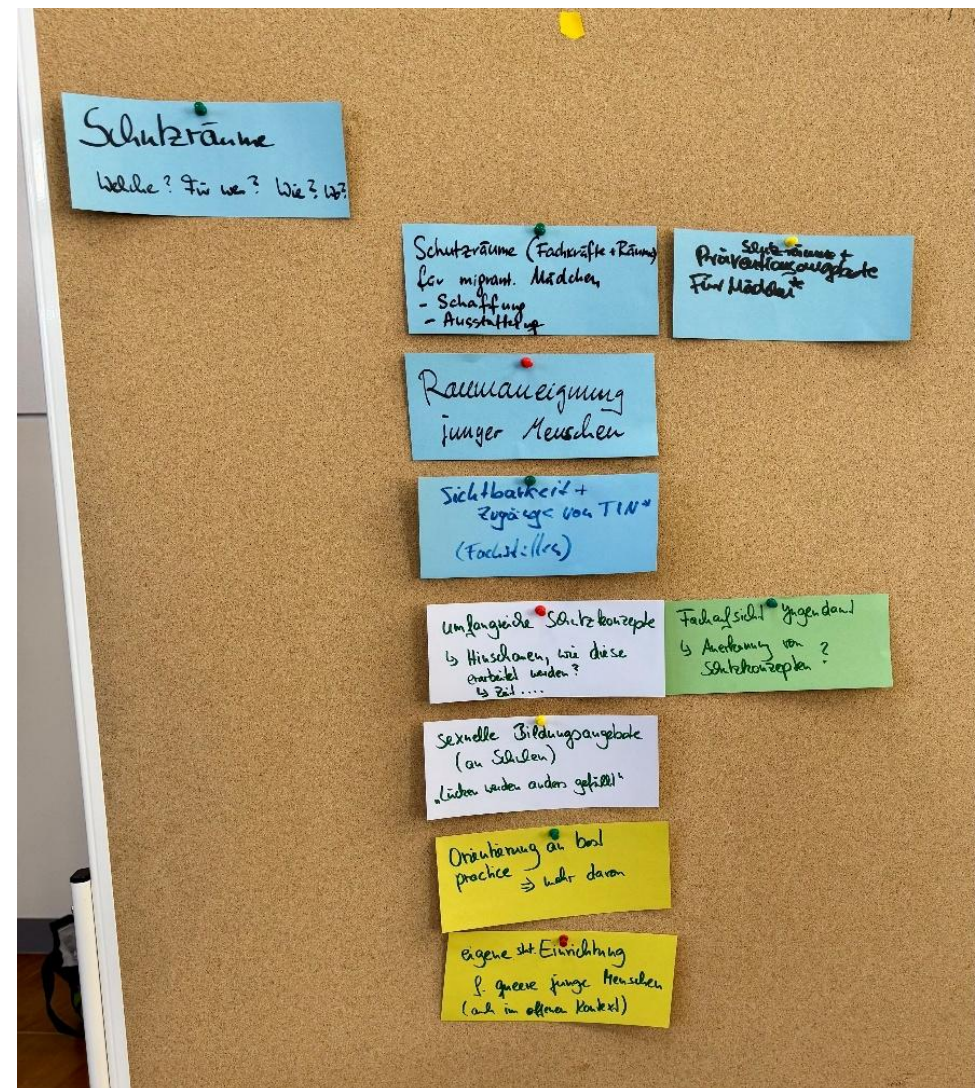 Schutzräume
Welche? Für wen? Wie? Wo?
Schutzräume (Fachkräfte + Räume)
für migrant. Mädchen
- Schaffung
- Ausstattung
Schutzräume +
Präventionsangebote
Für Mädchen*
Raumaneignung
junger Menschen
Sichtbarkeit +
Zugänge von TIN*
(Fachstellen)
umfangreiche Schutzkonzepte
↳ Hinschauen, wie diese
erarbeitet werden?
↳ Zeit ....
Fachaufsicht Jugendamt
↳ Anerkennung von ?
Schutzkonzepten
sexuelle Bildungsangebote
(an Schulen)
„Lücken werden anders gefüllt"
Orientierung an best
practice
⇒ mehr davon
eigene Einrichtung
f. queere junge Menschen
(auch im offenen Kontext)